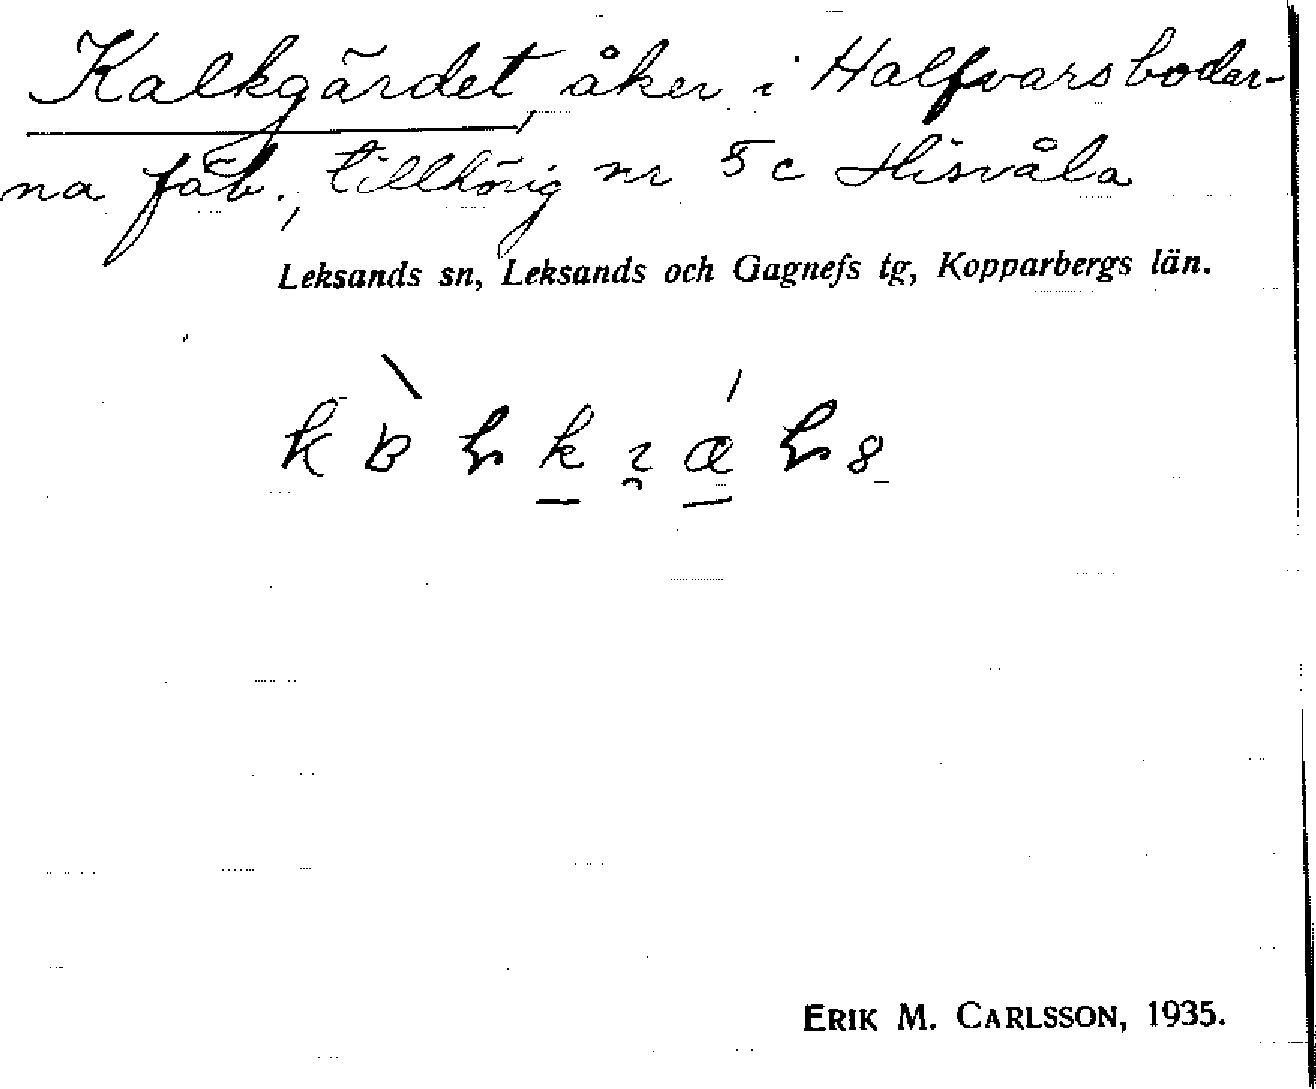 Kalkgärdet, åker i Halfvarsboder-
na fäb., tillhörig nr 5 c Hisvåla
Leksands sn, Leksands och Gagnefs tg, Kopparbergs län.
ERIK M. CARLSSON, 1935.